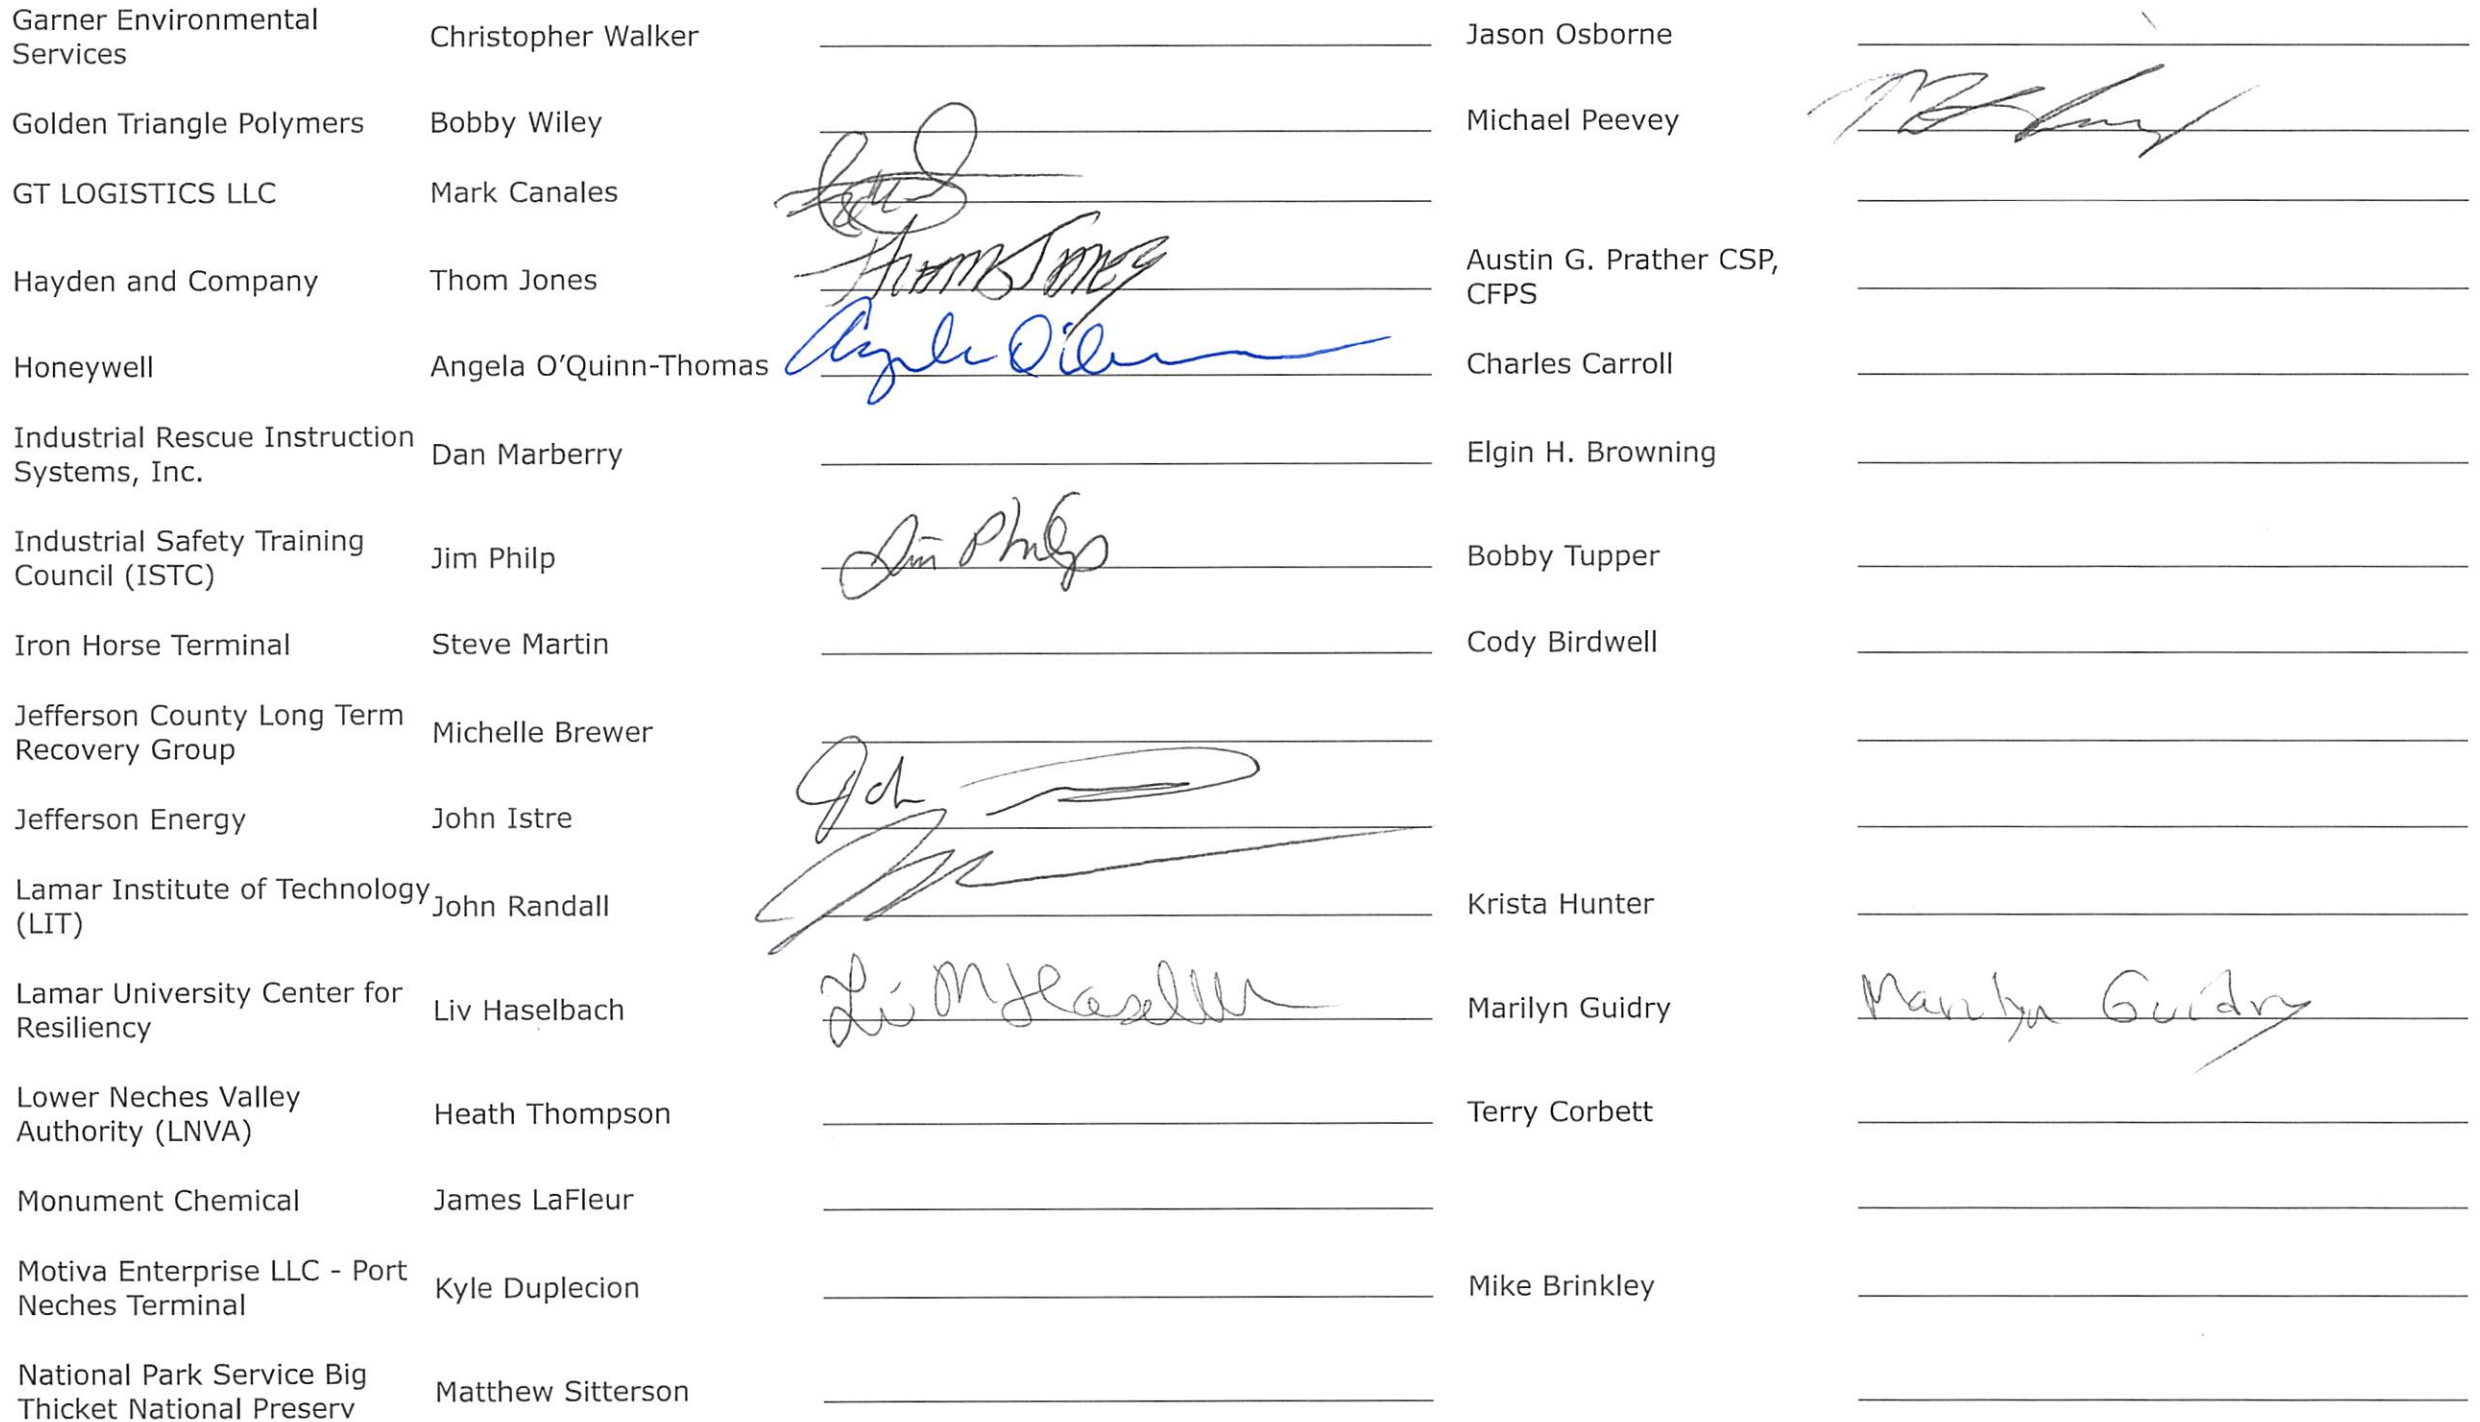 Garner Environmental
Services
Christopher Walker
Jason Osborne
Golden Triangle Polymers
Bobby Wiley
Michael Peevey
GT LOGISTICS LLC
Mark Canales
Hayden and Company
Thom Jones
Thom Jones
Austin G. Prather CSP,
CFPS
Honeywell
Angela O'Quinn-Thomas
Angela
Charles Carroll
Industrial Rescue Instruction
Systems, Inc.
Dan Marberry
Elgin H. Browning
Industrial Safety Training
Council (ISTC)
Jim Philp
Jim Philp
Bobby Tupper
Iron Horse Terminal
Steve Martin
Cody Birdwell
Jefferson County Long Term
Recovery Group
Michelle Brewer
Jefferson Energy
John Istre
John
Lamar Institute of Technology
(LIT)
John Randall
Krista Hunter
Lamar University Center for
Resiliency
Liv Haselbach
Liv M Haselbach
Marilyn Guidry
Marilyn Guidry
Lower Neches Valley
Authority (LNVA)
Heath Thompson
Terry Corbett
Monument Chemical
James LaFleur
Motiva Enterprise LLC - Port
Neches Terminal
Kyle Duplecion
Mike Brinkley
National Park Service Big
Thicket National Preserv
Matthew Sitterson